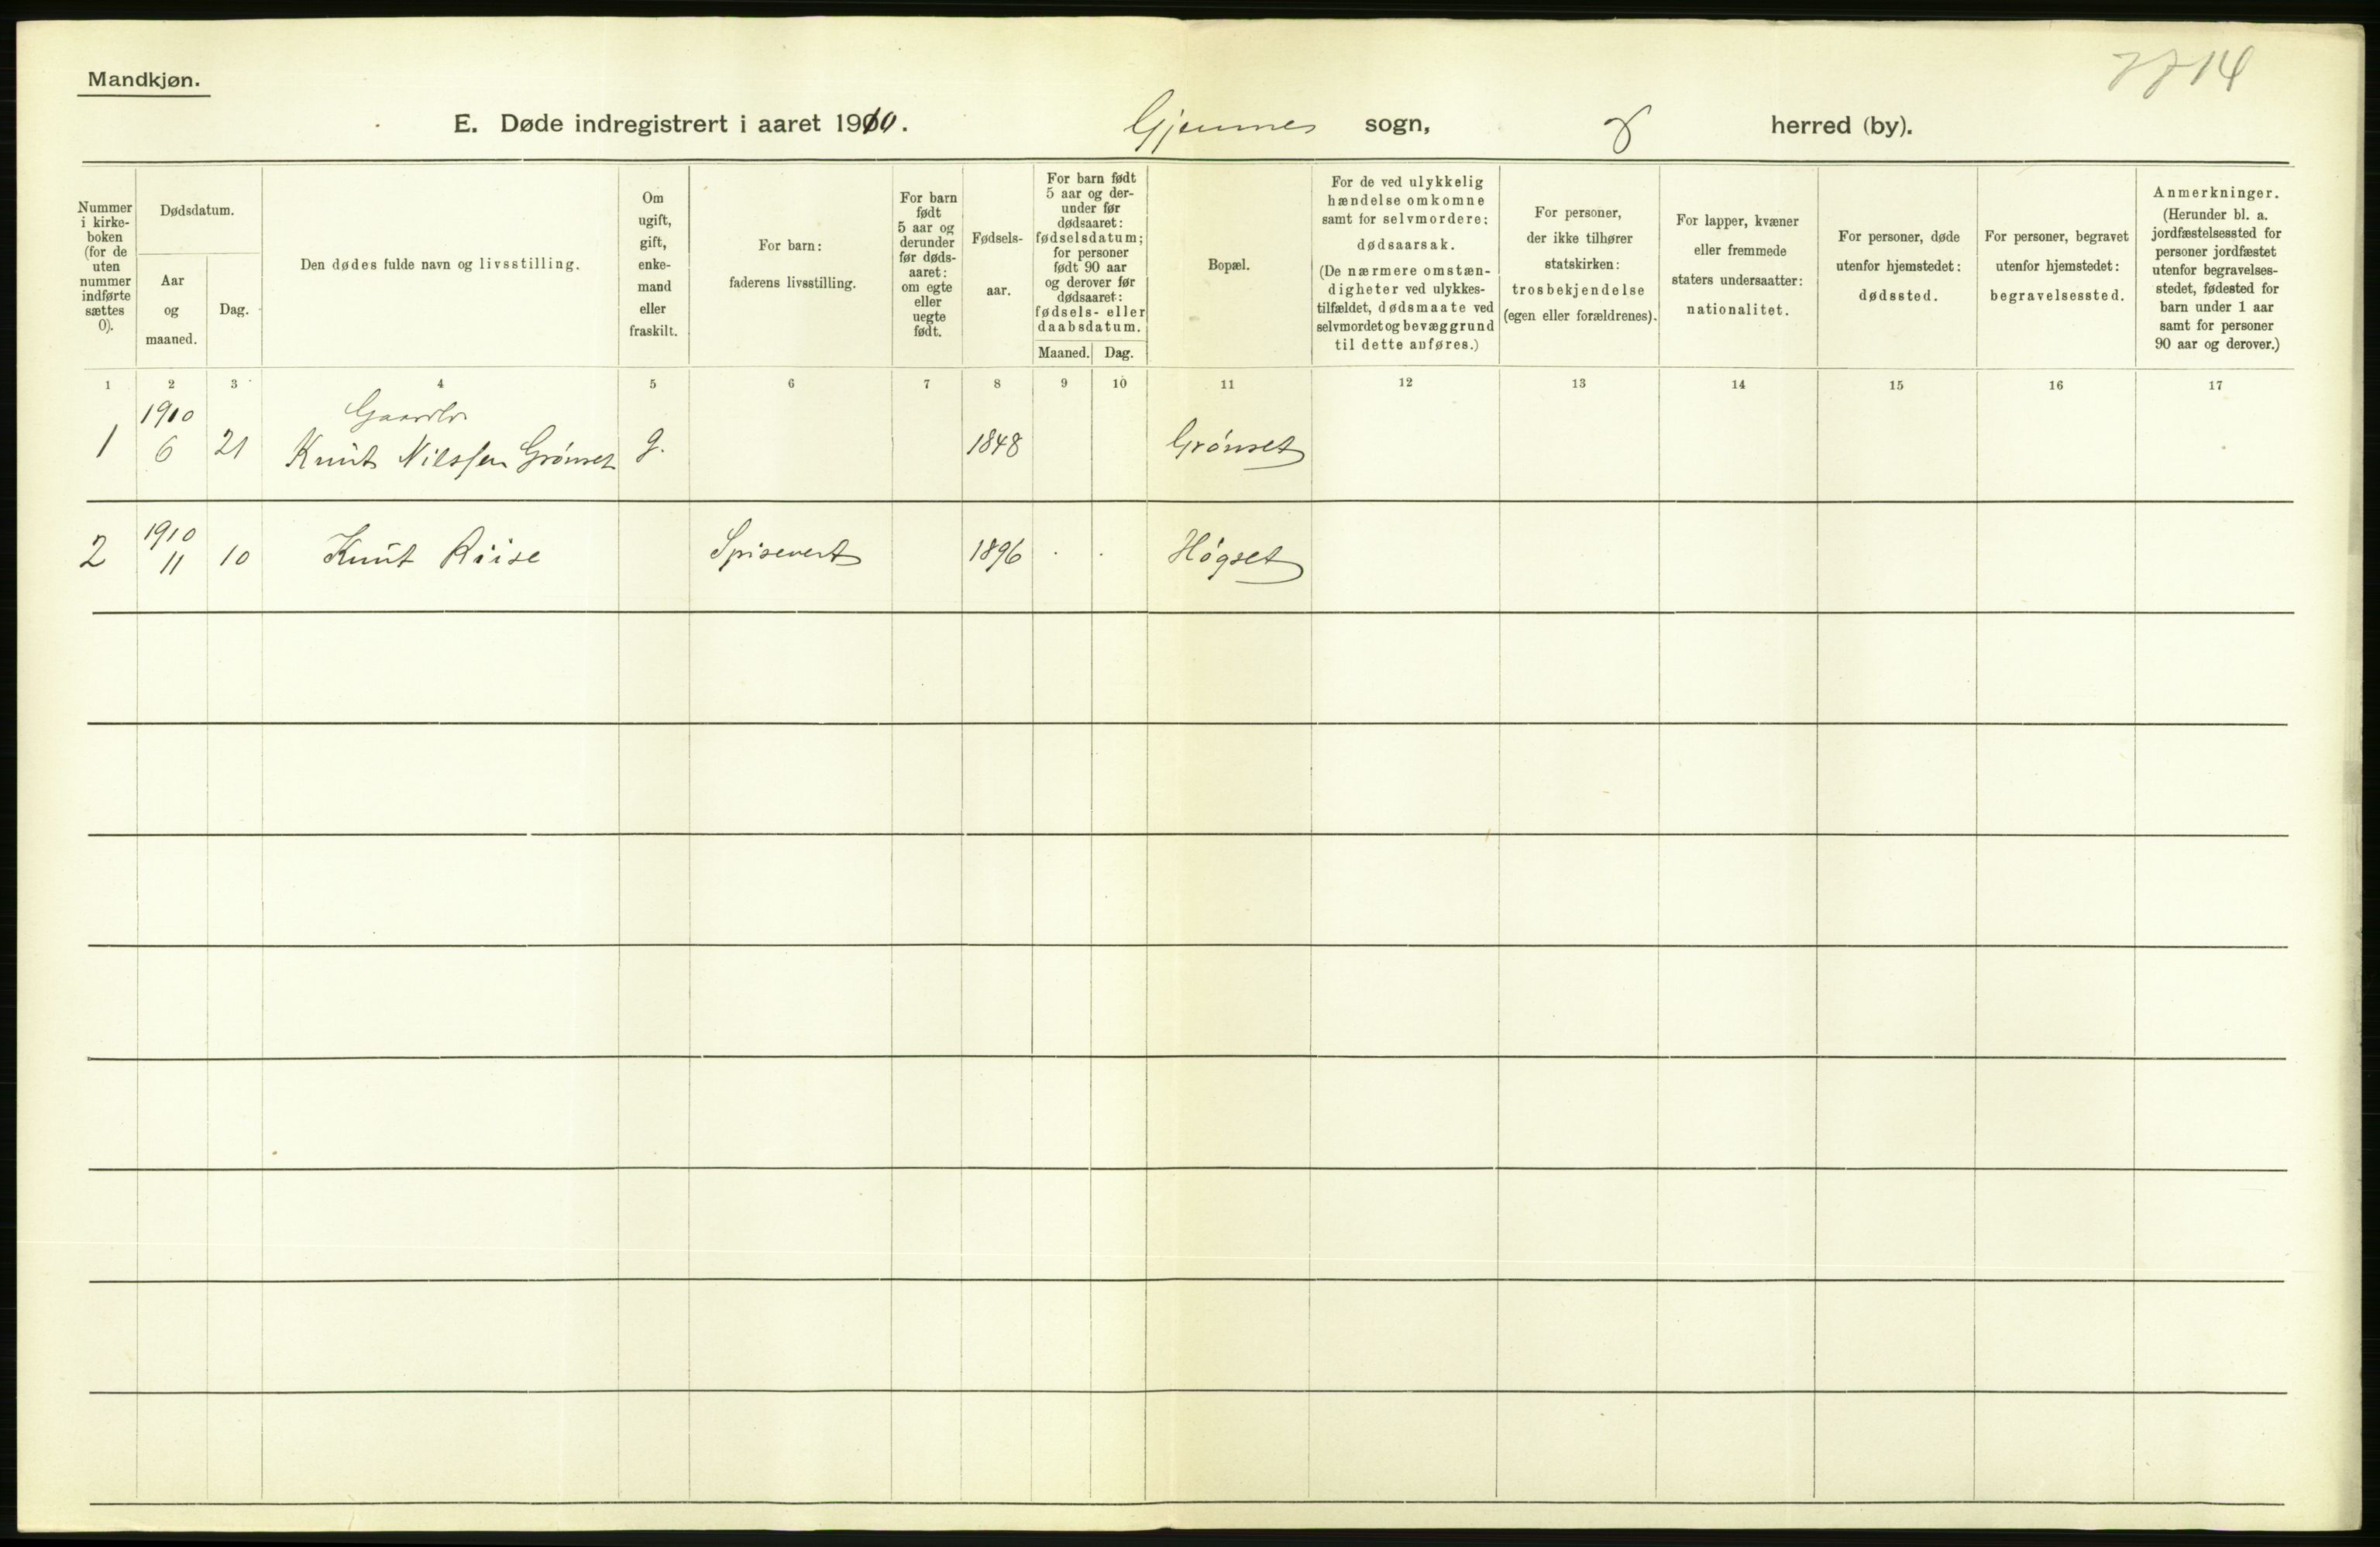 Mandkjøn.
E. Døde indregistrert i aaret 1910. Gjemnes sogn, herred (by).
Nummer
i kirke-
boken
(for de
uten
nummer
indførte
sættes
0).
Dødsdatum.
Aar
og
maaned.
Dag.
Den dødes fulde navn og livsstilling.
Om
ugift,
gift,
enke-
mand
eller
fraskilt.
For barn:
faderens livsstilling.
For barn
født
5 aar og
derunder
før døds-
aaret:
om egte
eller
uegte
født.
Fødsels-
aar.
For barn født
5 aar og der-
under før
dødsaaret:
fødselsdatum;
for personer
født 90 aar
og derover før
dødsaaret:
fødsels- eller
daabsdatum.
Maaned. Dag.
Bopæl.
For de ved ulykkelig
hændelse omkomne
samt for selvmordere:
dødsaarsak.
(De nærmere omstæn-
digheter ved ulykkes-
tilfældet, dødsmaate ved
selvmordet og bevæggrund
til dette anføres.)
For personer,
der ikke tilhører
statskirken:
trosbekjendelse
(egen eller forældrenes).
For lapper, kvæner
eller fremmede
staters undersaatter:
nationalitet.
For personer, døde
utenfor hjemstedet:
dødssted.
For personer, begravet
utenfor hjemstedet:
begravelsessted.
Anmerkninger.
(Herunder bl. a.
jordfæstelsessted for
personer jordfæstet
utenfor begravelses-
stedet, fødested for
barn under 1 aar
samt for personer
90 aar og derover.)
1 2 3 4 5 6 7 8 9 10 11 12 13 14 15 16 17
1910
1 6 21 Knut Nilssen Grönset g. 1848 Grönset
1910
2 11 10 Knut Riise Spisevert 1896 Högset